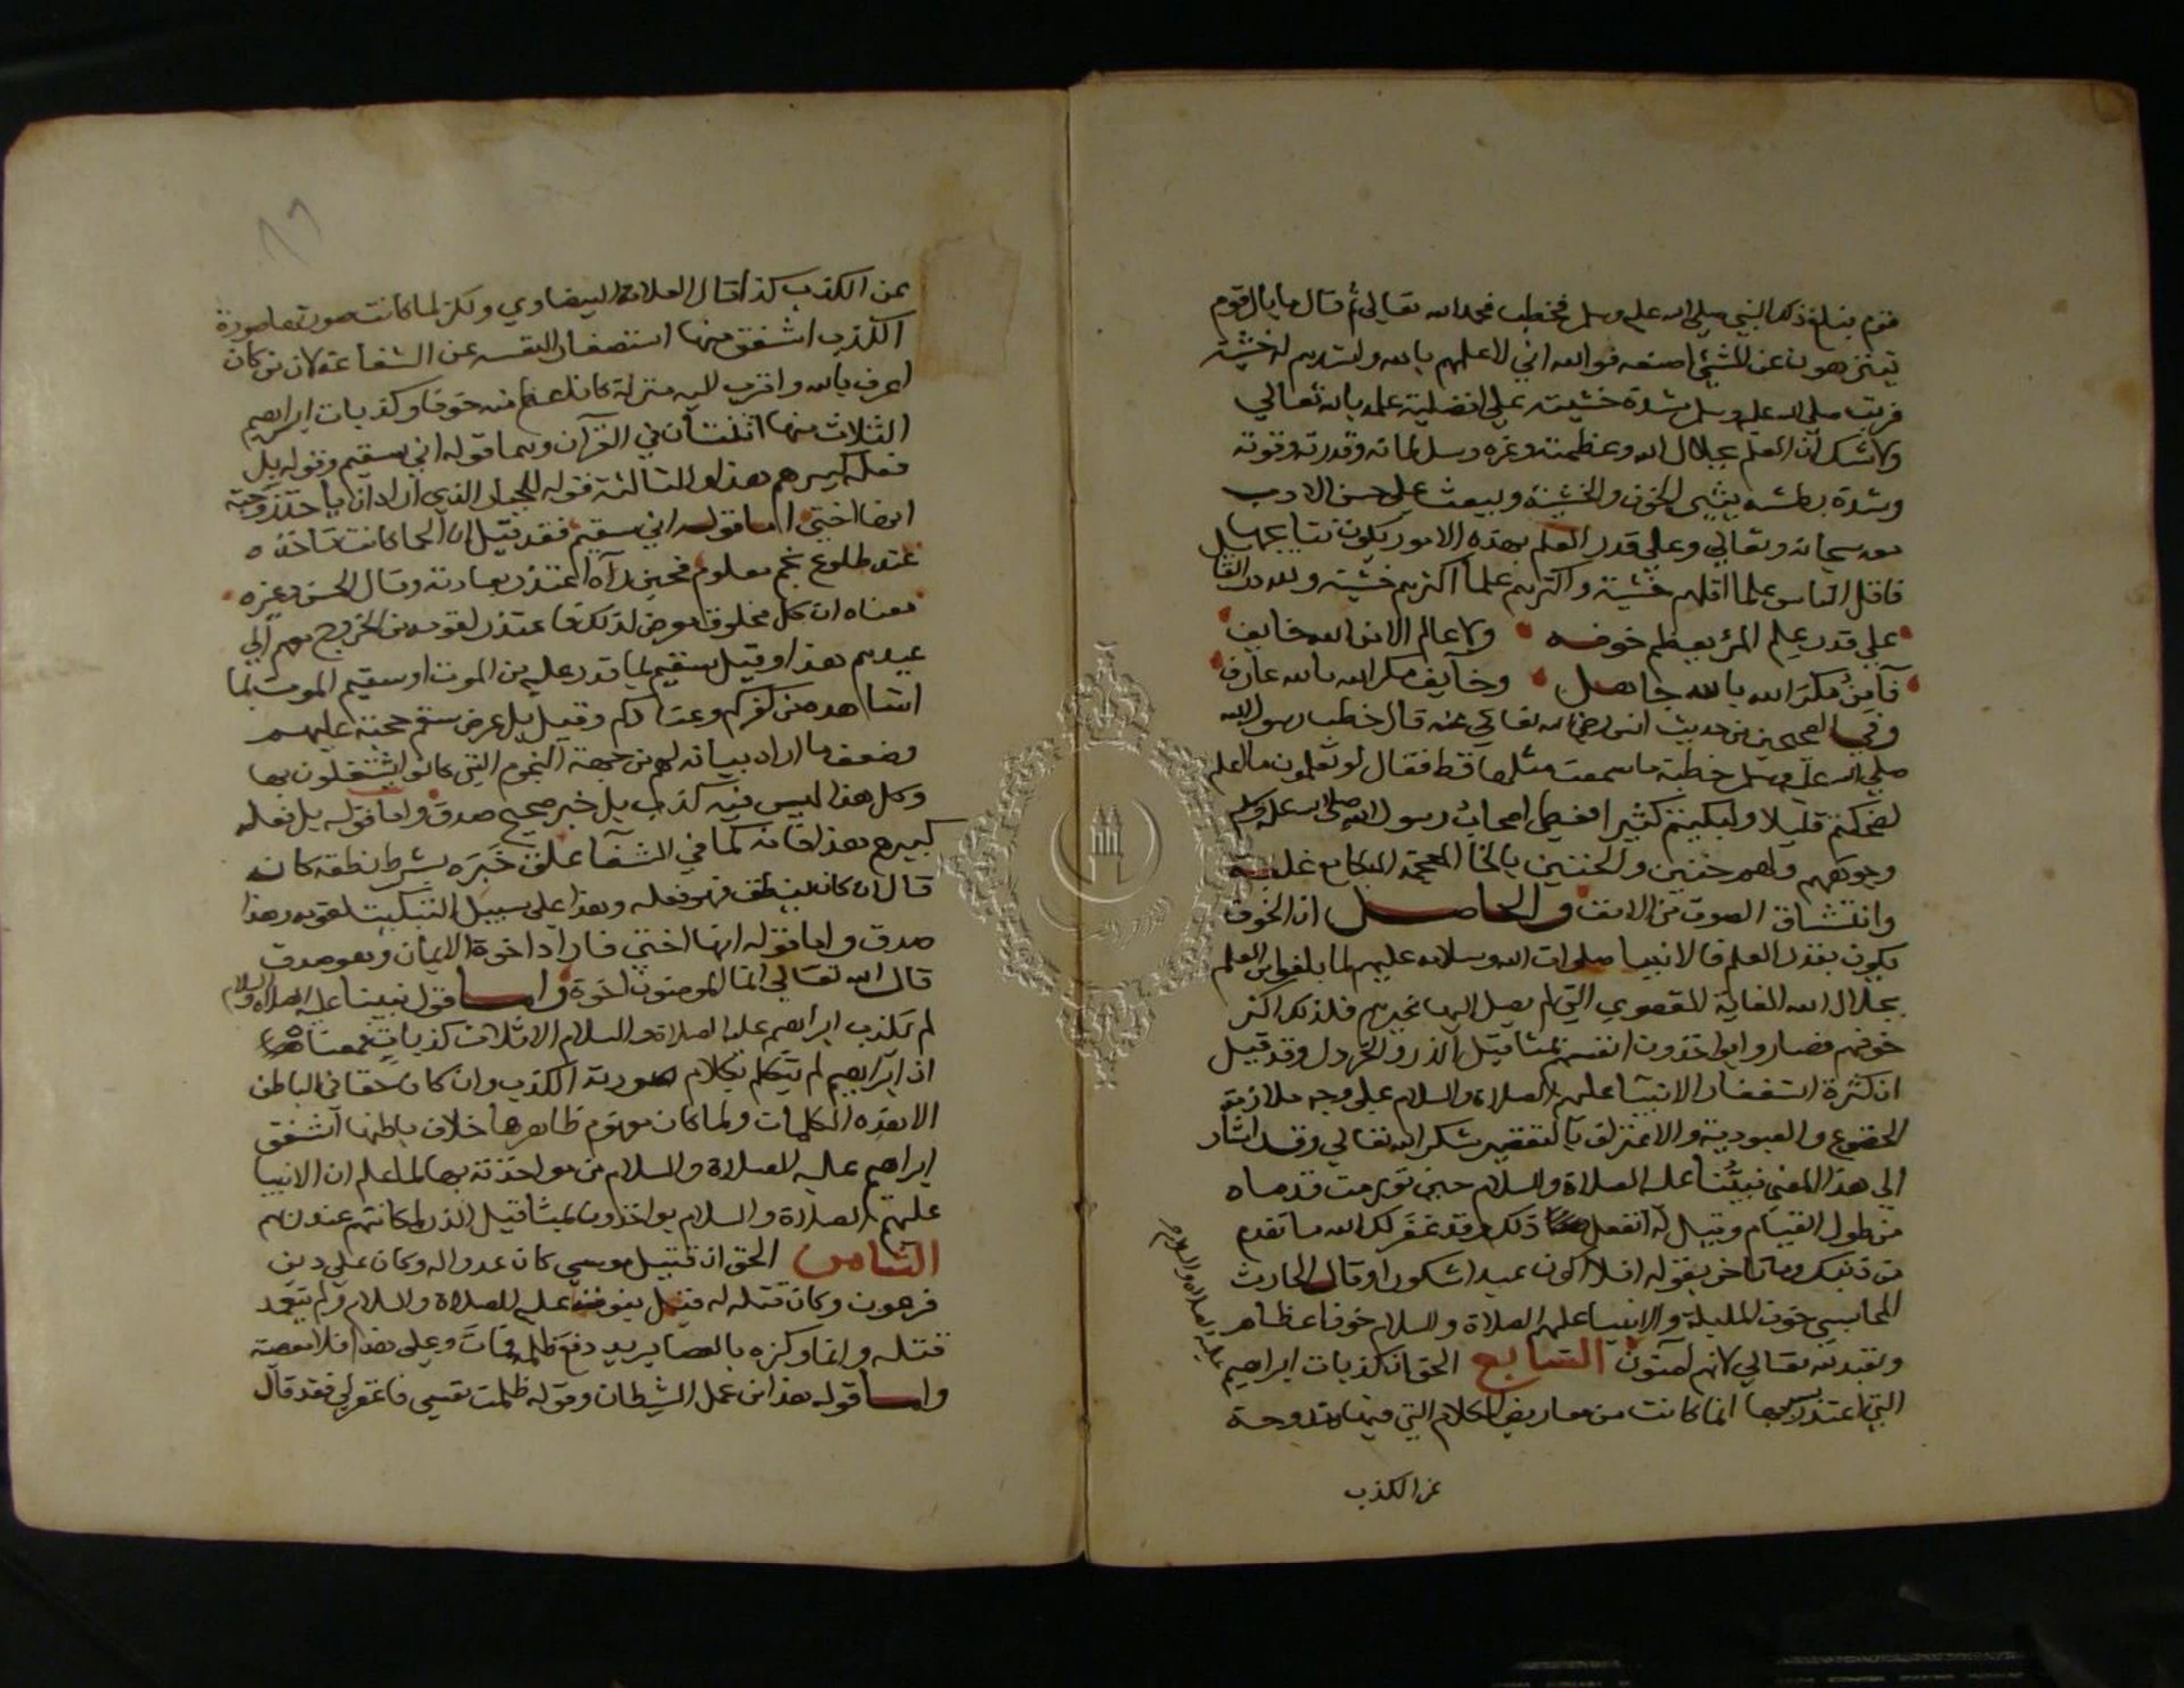 قوم فبلغ ذلك النبي صلى الله عليه وسلم فخطب فحمد الله تعالى ثم قال ما بال قوم
يتنزهون عن الشيء اصنعه فوالله اني لاعلمهم بالله واشدهم له خشية
فرتب صلى الله عليه وسلم شدة خشيته على افضلية علمه بالله تعالي
ولا شك ان العلم بجلال الله وعظمته وعزه وسلطانه وقدرته وقوته
وشدة بطشه يثير الخوف والخشية ويبعث على حسن الادب
معه سبحانه وتعالي وعلي قدر العلم بهذه الامور يكون نتايجها
فاقل الناس علما اقلهم خشية واكثرهم علما اكثرهم خشية ولله در القايل
على قدر علم المرء يعظم خوفه ولا عالم الا من الله خايف
فآمن مكر الله بالله جاهل وخايف مكر الله بالله عارف
وفي الصحيحين من حديث انس رضي الله تعالي عنه قال خطب رسول الله
صلي الله عليه وسلم خطبة ما سمعت مثلها قط فقال لو تعلمون ما اعلم
لضحكتم قليلا ولبكيتم كثيرا فغطى اصحاب رسول الله صلى الله عليه وسلم
وجوههم ولهم خنين والخنين بالخا المعجمة البكا مع غلبة
وانتشاق الصوت من الانف والحاصل ان الخوف
يكون بقدر العلم فالانبيا صلوات الله وسلامه عليهم لما بلغوا من العلم
بجلال الله الغاية القصوي التي لم يصل اليها غيرهم فلذلك اكثر
خوفهم فصاروا يواخذون انفسهم بمثاقيل الذر والخردل وقد قيل
ان كثرة استغفار الانبيا عليهم الصلاة والسلام على وجه ملازمة
الخضوع والعبودية والاعتراف بالتقصير شكر الله تعالي وقد اشار
الي هذا المعنى نبينا عليه الصلاة والسلام حين تورمت قدماه
من طول القيام وقيل له اتفعل ذلك وقد غفر لك الله ما تقدم
من ذنبك وما تاخر بقوله افلا اكون عبدا شكورا وقال الحارث
المحاسبي خوف الملايكة والانبيا عليهم الصلاة والسلام خوف اعظام
وتعبد لله تعالي لانهم آمنون السابع الحق ان كذبات ابراهيم
عليه الصلاة والسلام
التي اعتذر بها انما كانت من معاريض الكلام التي فيها مندوحة
عن الكذب
عن الكذب كذا قال العلامة البيضاوي ولكن لما كانت صورتها صورة
الكذب اشفق منها استصغارا لنفسه عن الشفاعة لان من كان
اعرف بالله واقرب اليه منزلة كان اعظم منه خوفا وكذبات ابراهيم
الثلاث منها اثنتان في القرآن وهما قوله اني سقيم وقوله بل
فعله كبيرهم هذا والثالثة قوله للجبار الذي اراد ان ياخذ زوجته
انها اختي اما قوله اني سقيم فقد قيل ان الحما كانت تاخذه
عند طلوع نجم معلوم فحين رآه اعتذر بعادته وقال الحسن وغيره
معناه ان كل مخلوق معرض لذلك فاعتذر لقومه من الخروج معهم الي
عيدهم هذا وقيل سقيم بما قدر عليه من الموت او سقيم الموت لما
اشاهد من كفركم وعنادكم وقيل بل عرض سقم حجته عليهم
وضعف ما اراد بيانه لهم من جهة النجوم التي كانوا يشتغلون بها
وكل هذا ليس فيه كذب بل خبر صحيح صدق واما قوله بل فعله
كبيرهم هذا فانه كما في الشفا علق خبره بشرط نطقه كانه
قال ان كان ينطق فهو فعله وهذا على سبيل التبكيت لقومه وهذا
صدق واما قوله انها اختي فاراد اخوة الايمان وهو صدق
قال الله تعالي انما المومنون اخوة واما قول نبينا عليه الصلاة والسلام
لم يكذب ابراهيم عليه الصلاة والسلام الا ثلاث كذبات فمعناه
ان ابراهيم لم يتكلم بكلام صورته الكذب وان كان حقا في الباطن
الا هذه الكلمات ولما كان مفهوم ظاهرها خلاف باطنها اشفق
ابراهيم عليه الصلاة والسلام من مواخذته بها لما علم ان الانبيا
عليهم الصلاة والسلام يواخذون بمثاقيل الذر لمكانتهم عندهم
الثامن الحق ان قتيل موسي كان عدوا له وكان علي دين
فرعون وكان قتله له قبل نبوته عليه الصلاة والسلام ولم يتعمد
قتله وانما وكزه بالعصا يريد دفع ظلمه فمات وعلي هذا فلا معصية
واما قوله هذا من عمل الشيطان وقوله ظلمت نفسي فاغفر لي فقد قال